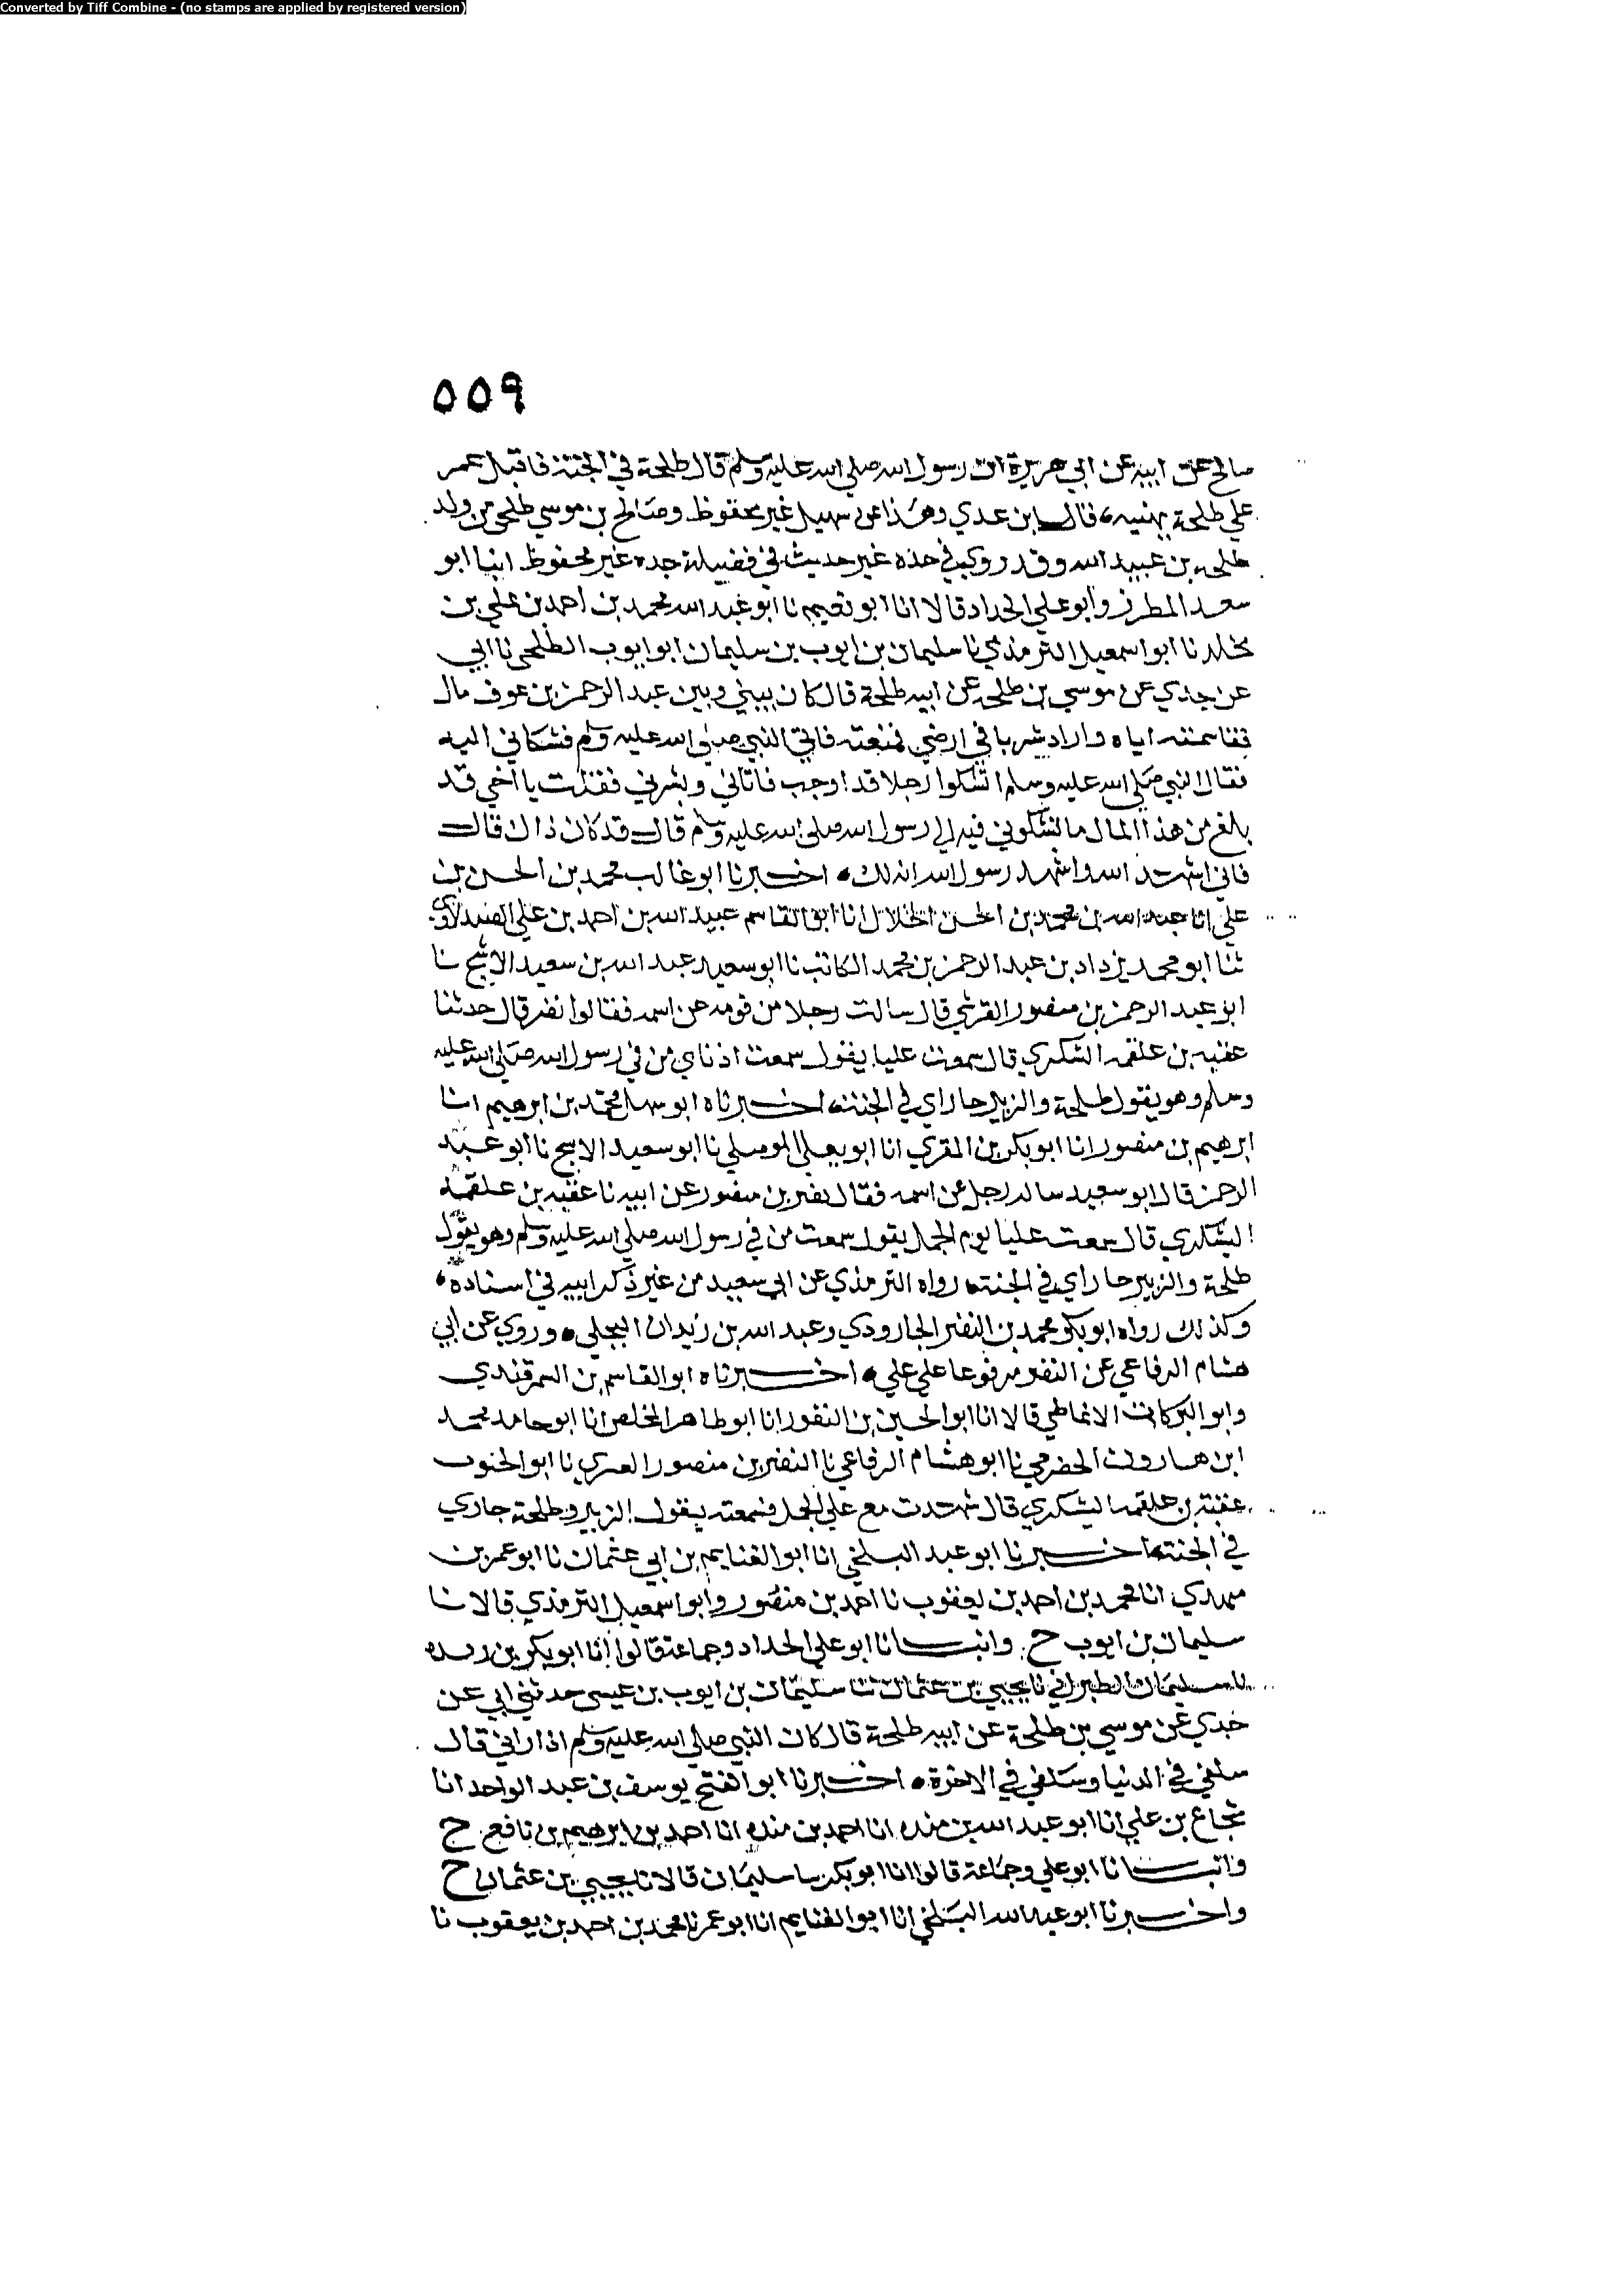 Converted by Tiff Combine - (no stamps are applied by registered version)
٥٥٩
صالح عن ابيه عن ابي هريرة ان رسول الله صلى الله عليه وسلم قال طلحة في الجنة فاقبل عمر
علي طلحة يهنيه، قال ابن عدي وهذا عن سهيل غير محفوظ وصالح بن موسي طلحي من ولد
طلحه بن عبيد الله وقد روي في حده غير حديث في فضيلة جده غير محفوظ انبا ابو
سعد المطرز وابو علي الحداد قالا انا ابو نعيم نا ابو عبد الله محمد بن احمد بن علي بن
مخلد نا ابو اسمعيل الترمذي نا سليمان بن ايوب بن سليمان ابو ايوب الطلحي نا ابي
عن جدي عن موسي بن طلحه عن ابيه طلحة قال كان بيني وبين عبد الرحمن بن عوف مال
فقاسمته اياه واراد شربا في ارضي فمنعته فاتي النبي صلى الله عليه وسلم فشكاني اليه
فقال النبي صلى الله عليه وسلم اتشكوا رجلا قد اوجب فاتاني وبشرني فقلت يا اخي قد
بلغ من هذا المال ما تشكوني فيه الي رسول الله صلى الله عليه وسلم قال قد كان ذاك قال
فاني اشهد الله واشهد رسول الله انه لك ٥ اخبرنا ابو غالب محمد بن الحسن بن
علي انا عبد الله بن محمد بن الحسن الخلال انا ابو القاسم عبيد الله بن احمد بن علي الصيدلاوي
ثنا ابو محمد يزداد بن عبد الرحمن بن محمد الكاتب نا ابو سعيد عبد الله بن سعيد الاشج نا
ابو عبد الرحمن بن منصور القرشي قال سالت رجلا من قومه عن اسمه فقالوا نضر قال حدثنا
عقبه بن علقمه الشكري قال سمعت عليا يقول سمعت اذناي من في رسول الله صلى الله عليه
وسلم وهو يقول طلحة والزبير جاراي في الجنة ٥ اخبرناه ابو سهل محمد بن ابرهيم انا
ابرهيم بن منصور انا ابو بكر بن المقري انا ابو يعلي الموصلي نا ابو سعيد الاشج نا ابو عبد
الرحمن قال ابو سعيد ساله رجل عن اسمه فقال نضر بن منصور عن ابيه نا عقبه بن علقمة
اليشكري قال سمعت عليا يوم الجمل يقول سمعت من في رسول الله صلي الله عليه وسلم وهو يقول
طلحة والزبير جاراي في الجنة ٥ رواه الترمذي عن ابي سعيد من غير ذكر ابيه في اسناده،
وكذلك رواه ابو بكر محمد بن النضر الجارودي وعبد الله بن زيدان البجلي ٥ وروي عن ابي
هشام الرفاعي عن النضر مرفوعا علي علي ٥ اخبرناه ابو القاسم بن السمرقندي
وابو البركات الانماطي قالا انا ابو الحسين بن النقور انا ابو طاهر المخلص انا ابو حامد محمد
ابن هارون الحضرمي نا ابو هشام الرفاعي نا النضر بن منصور العبري نا ابو الجنوب
عقبة بن علقمه اليشكري قال شهدت مع علي الجمل فسمعته يقول الزبير وطلحة جاري
في الجنة ٥ اخبرنا ابو عبد البلخي انا ابو الغنايم بن ابي عثمان نا ابو عمر بن
مهدي انا محمد بن احمد بن يعقوب نا احمد بن منصور وابو اسمعيل الترمذي قالا نا
سليمان بن ايوب ح وانبانا ابو علي الحداد وجماعة قالوا انا ابو بكر بن ريده
سليمان الطبراني نا يحيي بن عثمان ثنا سليمان بن ايوب بن عيسي حدثني ابي عن
جدي عن موسي بن طلحة عن ابيه طلحة قال كان النبي صلى الله عليه وسلم اذا راني قال
سلفي في الدنيا وسلفي في الاخرة ٥ اخبرنا ابو الفتح يوسف بن عبد الواحد انا
شجاع بن علي انا ابو عبد الله بن منده انا احمد بن منده انا احمد بن ابرهيم بن نافع ح
وانبانا ابو علي وجماعة قالوا انا ابو بكر نا سليمان قالا نا يحيي بن عثمان ح
واخبرنا ابو عبد الله البلخي انا ابو الغنايم انا ابو عمر نا محمد بن احمد بن يعقوب نا